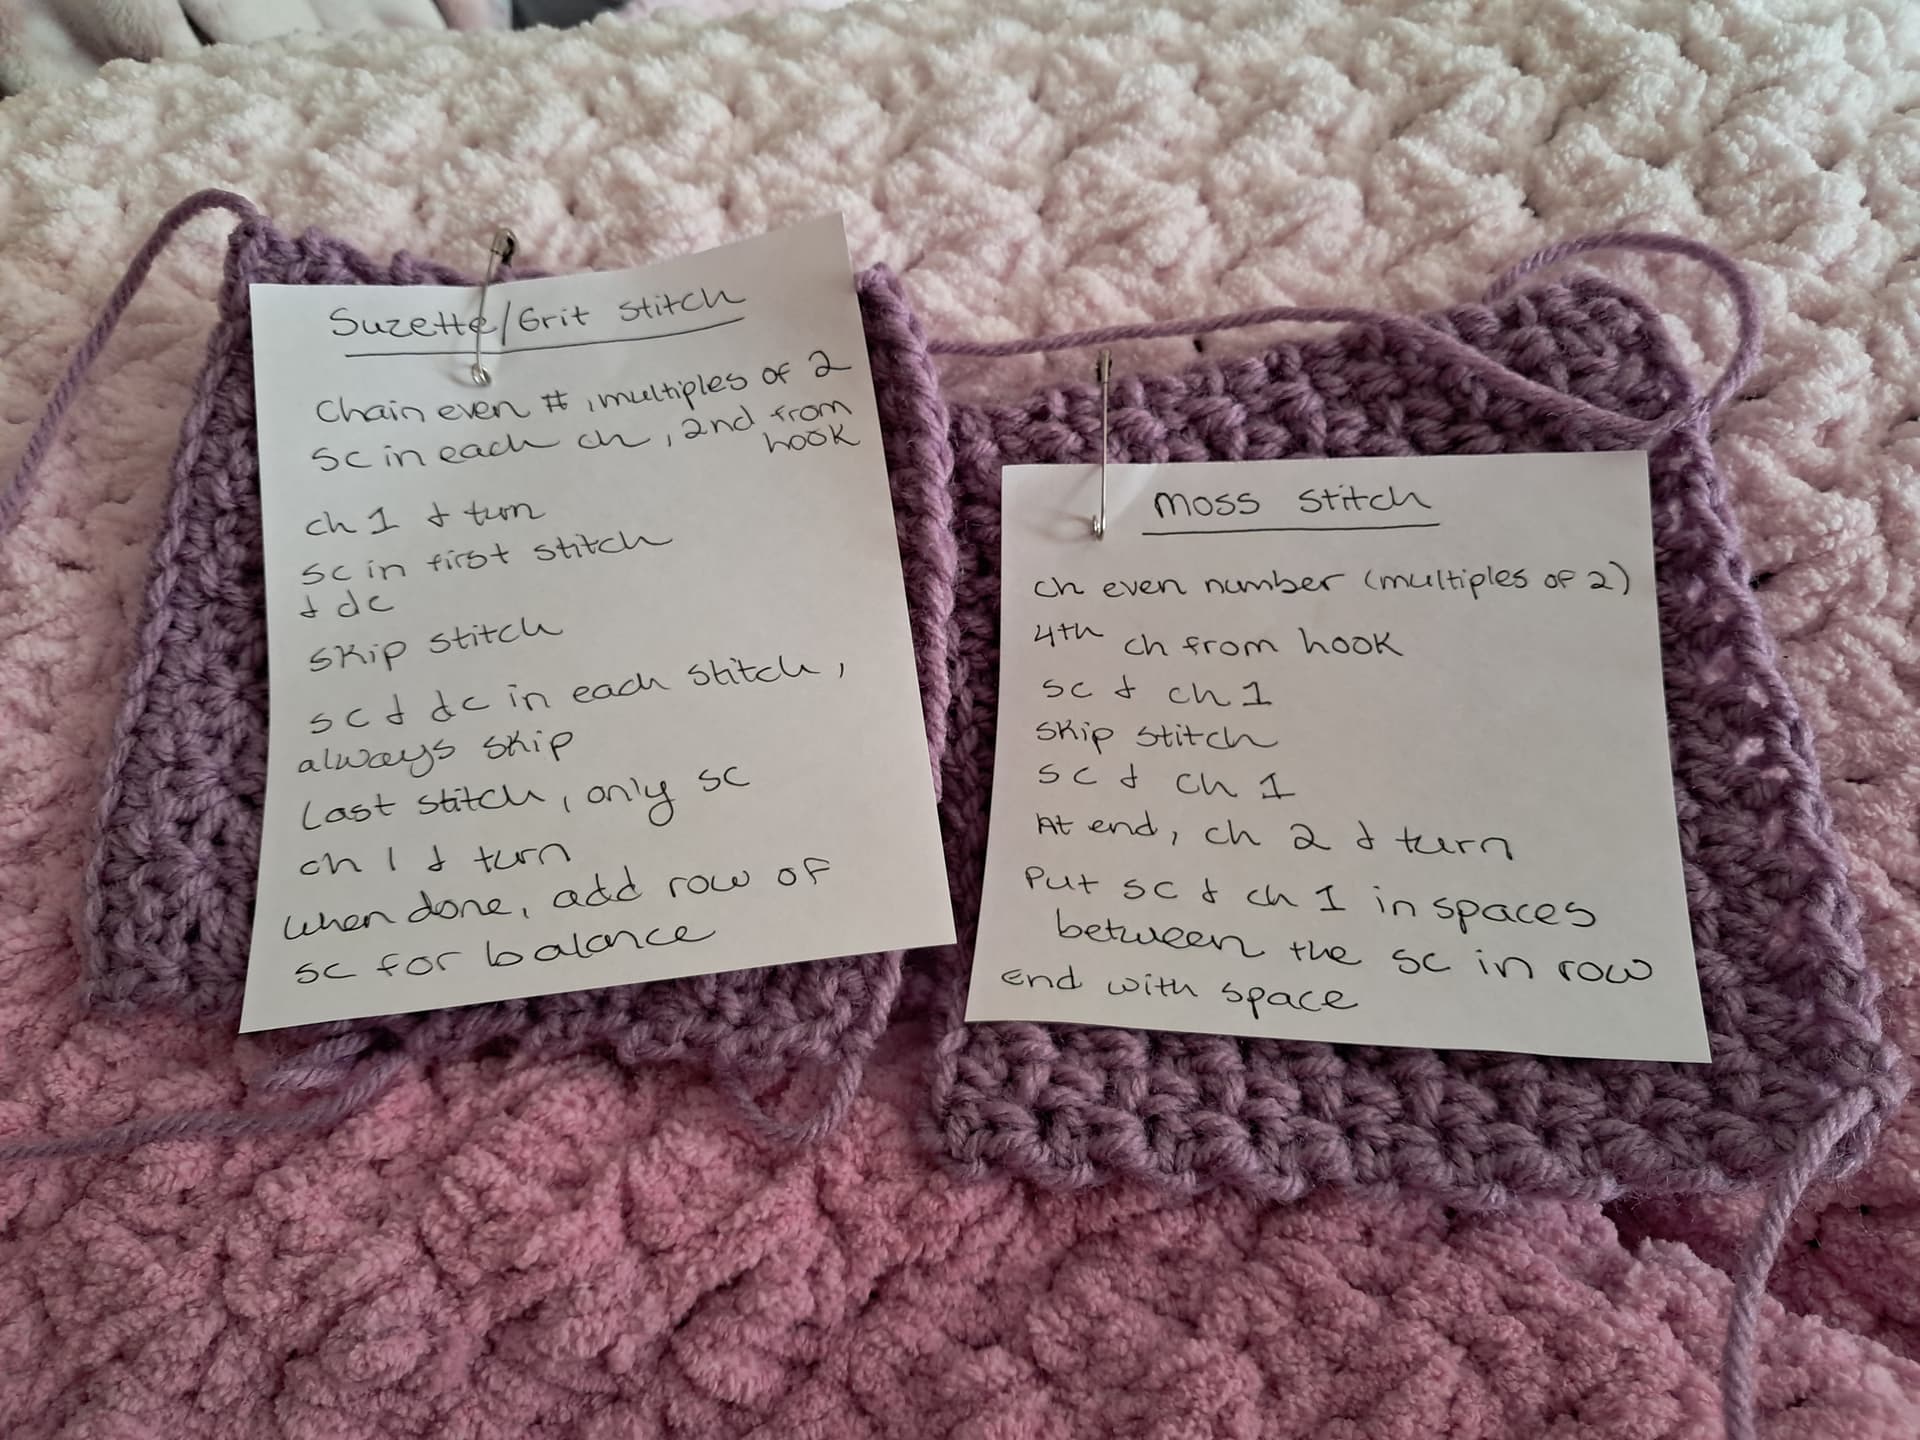 Suzette/Grit Stitch
Chain even #, multiples of 2
sc in each ch, 2nd from
hook
ch 1 & turn
sc in first stitch
& dc
skip stitch
sc & dc in each stitch,
always skip
Last stitch, only sc
ch 1 & turn
when done, add row of
sc for balance
Moss Stitch
ch even number (multiples of 2)
4th ch from hook
sc & ch 1
skip stitch
sc & ch 1
At end, ch 2 & turn
Put sc & ch 1 in spaces
between the sc in row
End with space